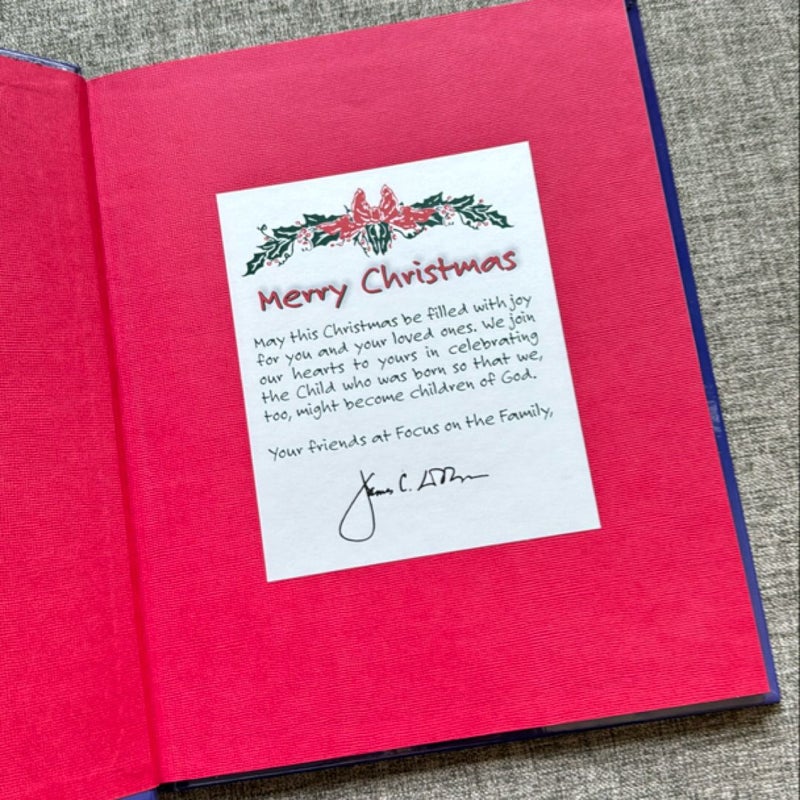 Merry Christmas
May this Christmas be filled with joy
for you and your loved ones. We join
our hearts to yours in celebrating
the Child who was born so that we,
too, might become children of God.
Your friends at Focus on the Family,
James C. Dobson